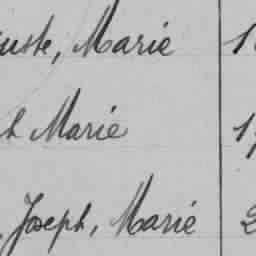 uste, Marie 1
h Marie 1
Joseph, Marie 2